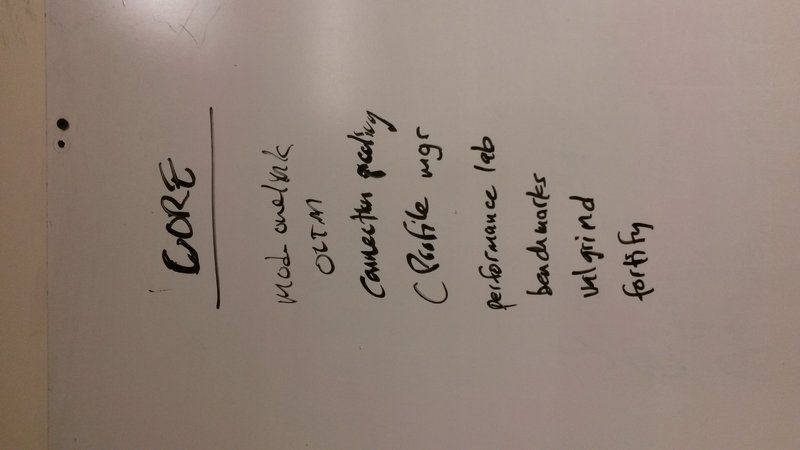 CORE
OLTM
Connection pooling
( Profile mgr
performance lab
benchmarks
valgrind
fortify